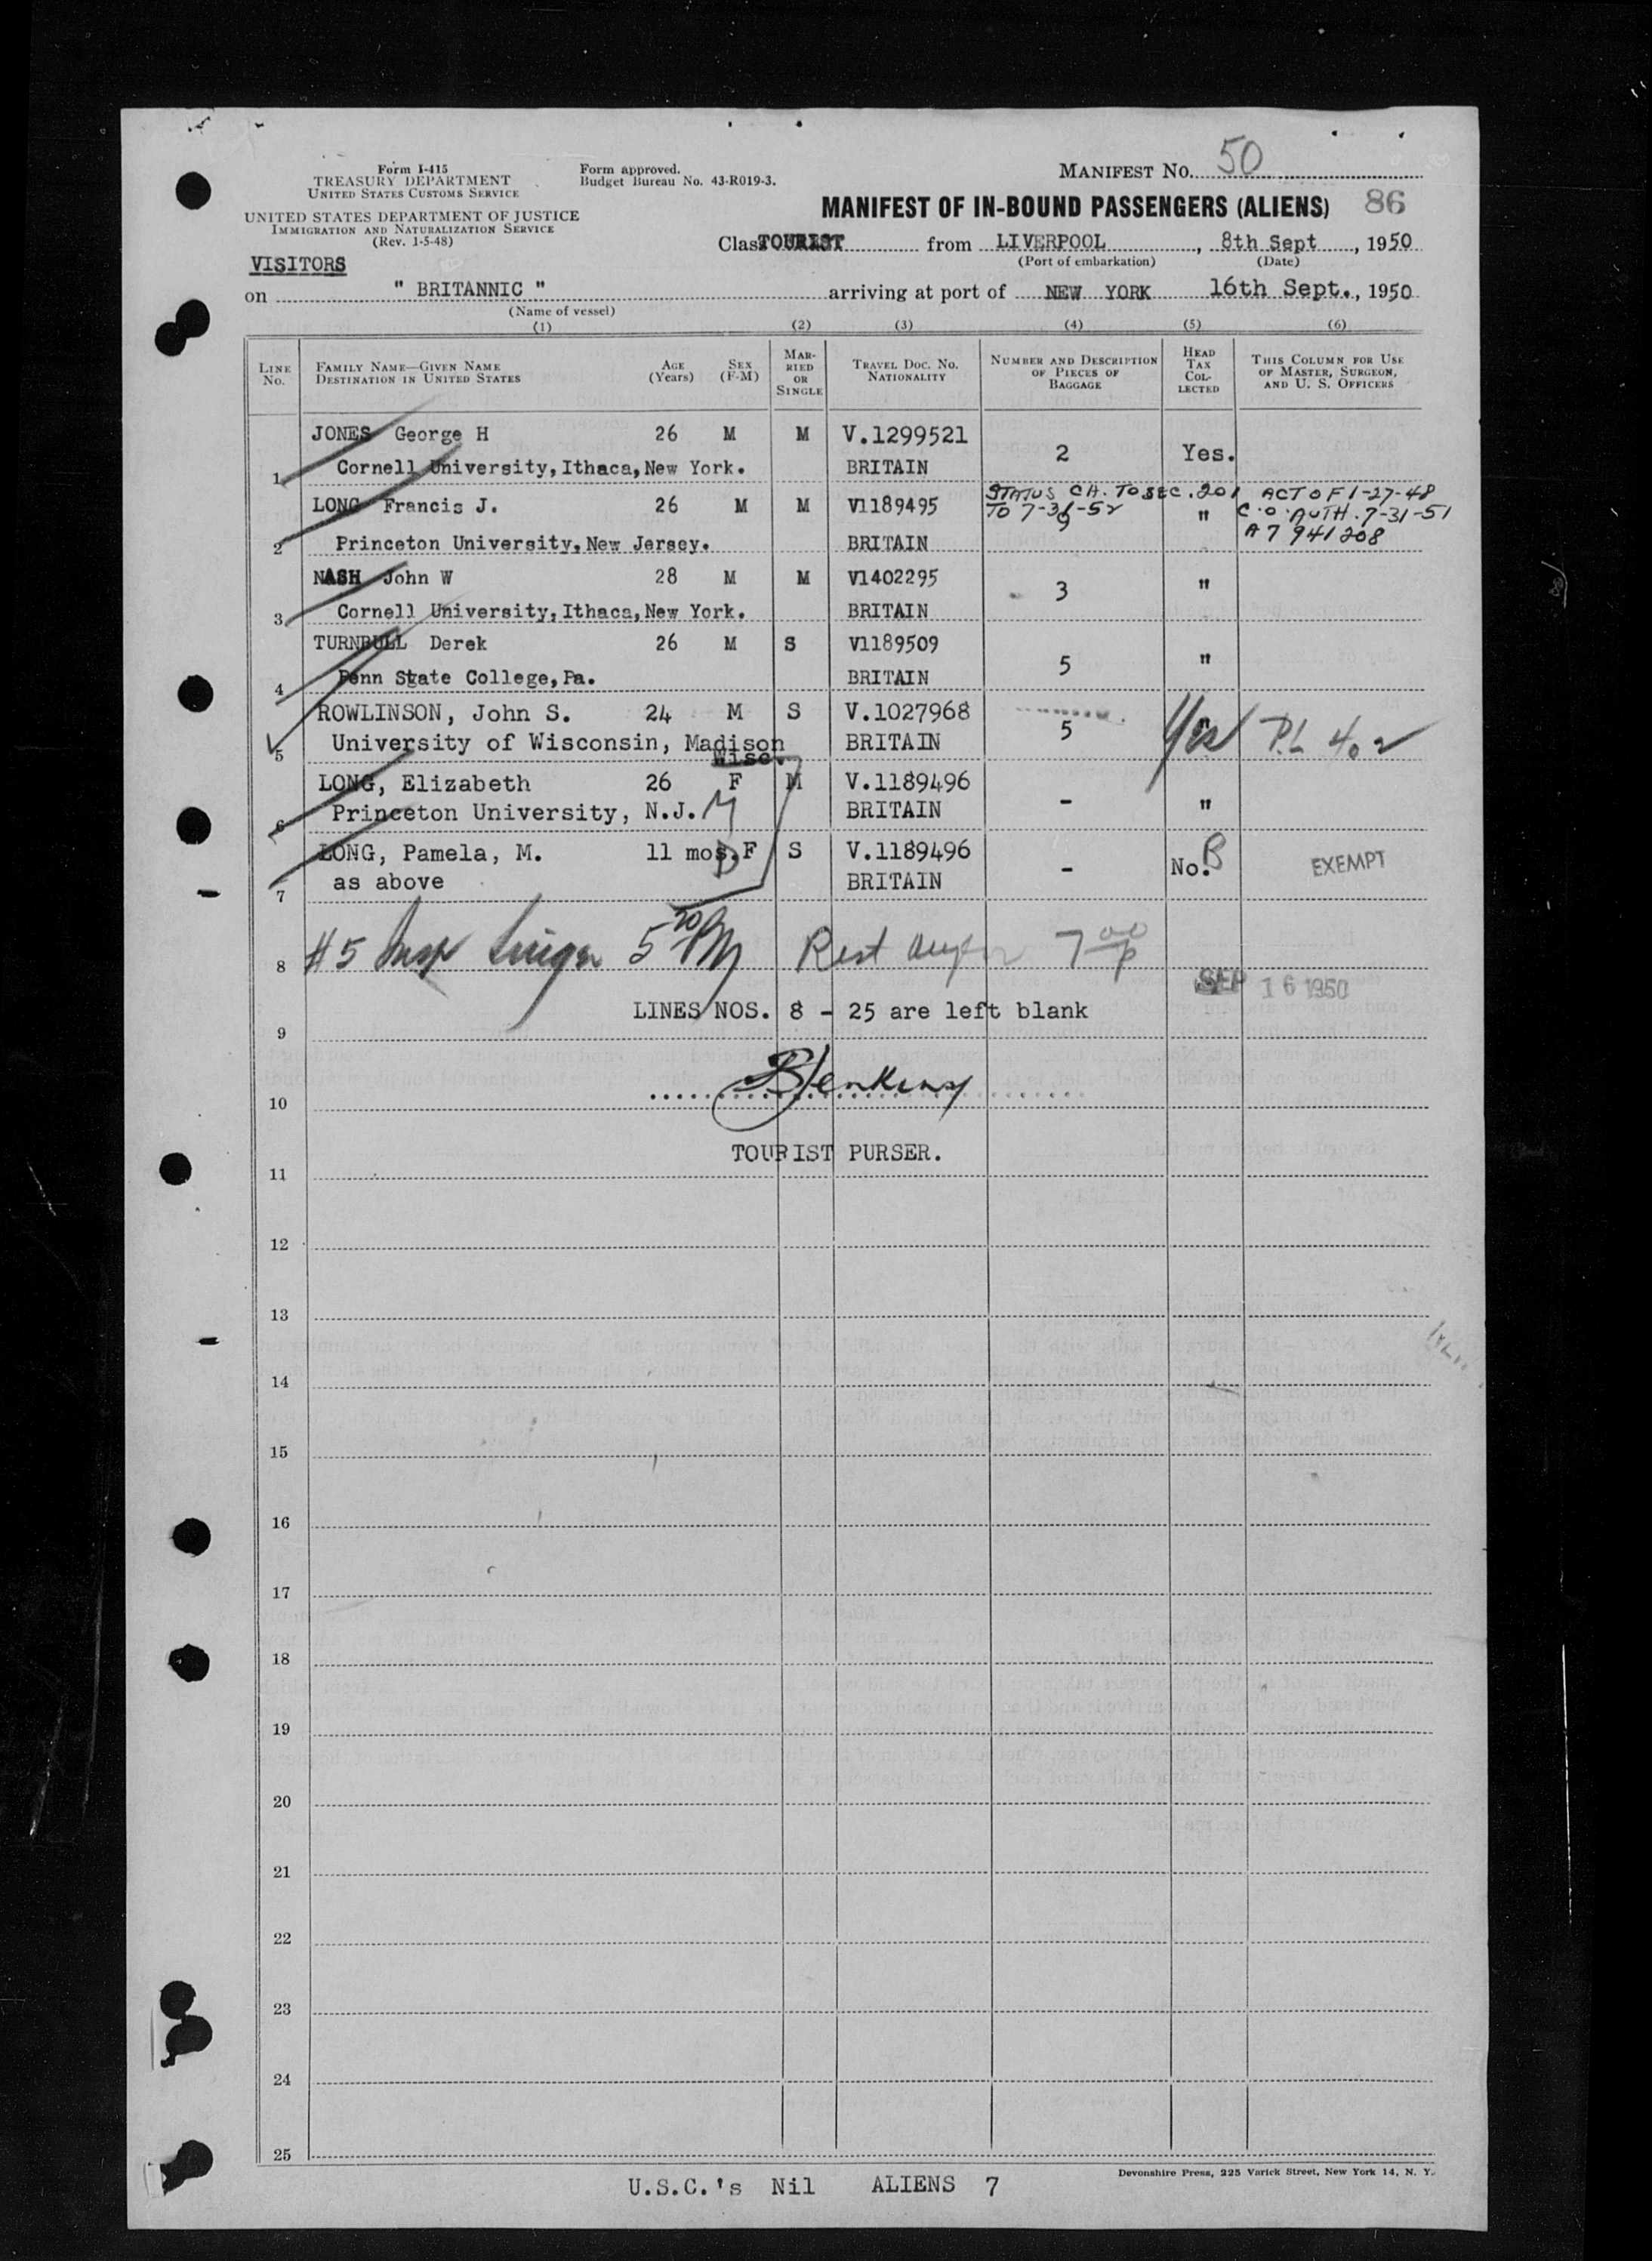 Form I-415
TREASURY DEPARTMENT
UNITED STATES CUSTOMS SERVICE
UNITED STATES DEPARTMENT OF JUSTICE
IMMIGRATION AND NATURALIZATION SERVICE
(Rev. 1-5-48)
Form approved.
Budget Bureau No. 43-R019-3.
MANIFEST No. 50
MANIFEST OF IN-BOUND PASSENGERS (ALIENS) 86
Clas TOURIST from LIVERPOOL, 8th Sept, 1950
(Port of embarkation) (Date)
VISITORS
on " BRITANNIC " arriving at port of NEW YORK 16th Sept., 1950
(Name of vessel)
(1) (2) (3) (4) (5) (6)
LINE No. FAMILY NAME—GIVEN NAME DESTINATION IN UNITED STATES AGE (Years) SEX (F-M) MARRIED OR SINGLE TRAVEL DOC. NO. NATIONALITY NUMBER AND DESCRIPTION OF PIECES OF BAGGAGE HEAD TAX COLLECTED THIS COLUMN FOR USE OF MASTER, SURGEON, AND U. S. OFFICERS
JONES George H 26 M M V.1299521
1 Cornell University, Ithaca, New York. BRITAIN 2 Yes.
LONG Francis J. 26 M M V1189495 STATUS CH. TO SEC. 201 ACT OF 1-27-48
TO 7-31-52 " C.O. AUTH. 7-31-51
A7 941208
2 Princeton University, New Jersey. BRITAIN
NASH John W 28 M M V1402295
3 Cornell University, Ithaca, New York. BRITAIN 3 "
TURNBULL Derek 26 M S V1189509
4 Penn State College, Pa. BRITAIN 5 "
ROWLINSON, John S. 24 M S V.1027968
5 University of Wisconsin, Madison Wisc. BRITAIN 5 Yes P.L. 402
LONG, Elizabeth 26 F M V.1189496
6 Princeton University, N.J. M BRITAIN - "
LONG, Pamela, M. 11 mos. F S V.1189496
7 as above BRITAIN - No. B EXEMPT
8 #5 Insp 5 PM Rest 7 00 p
SEP 16 1950
LINES NOS. 8 - 25 are left blank
9
Jenkins
10
TOURIST PURSER.
11
12
13
14
15
16
17
18
19
20
21
22
23
24
25
Devonshire Press, 225 Varick Street, New York 14, N. Y.
U.S.C.'s Nil ALIENS 7